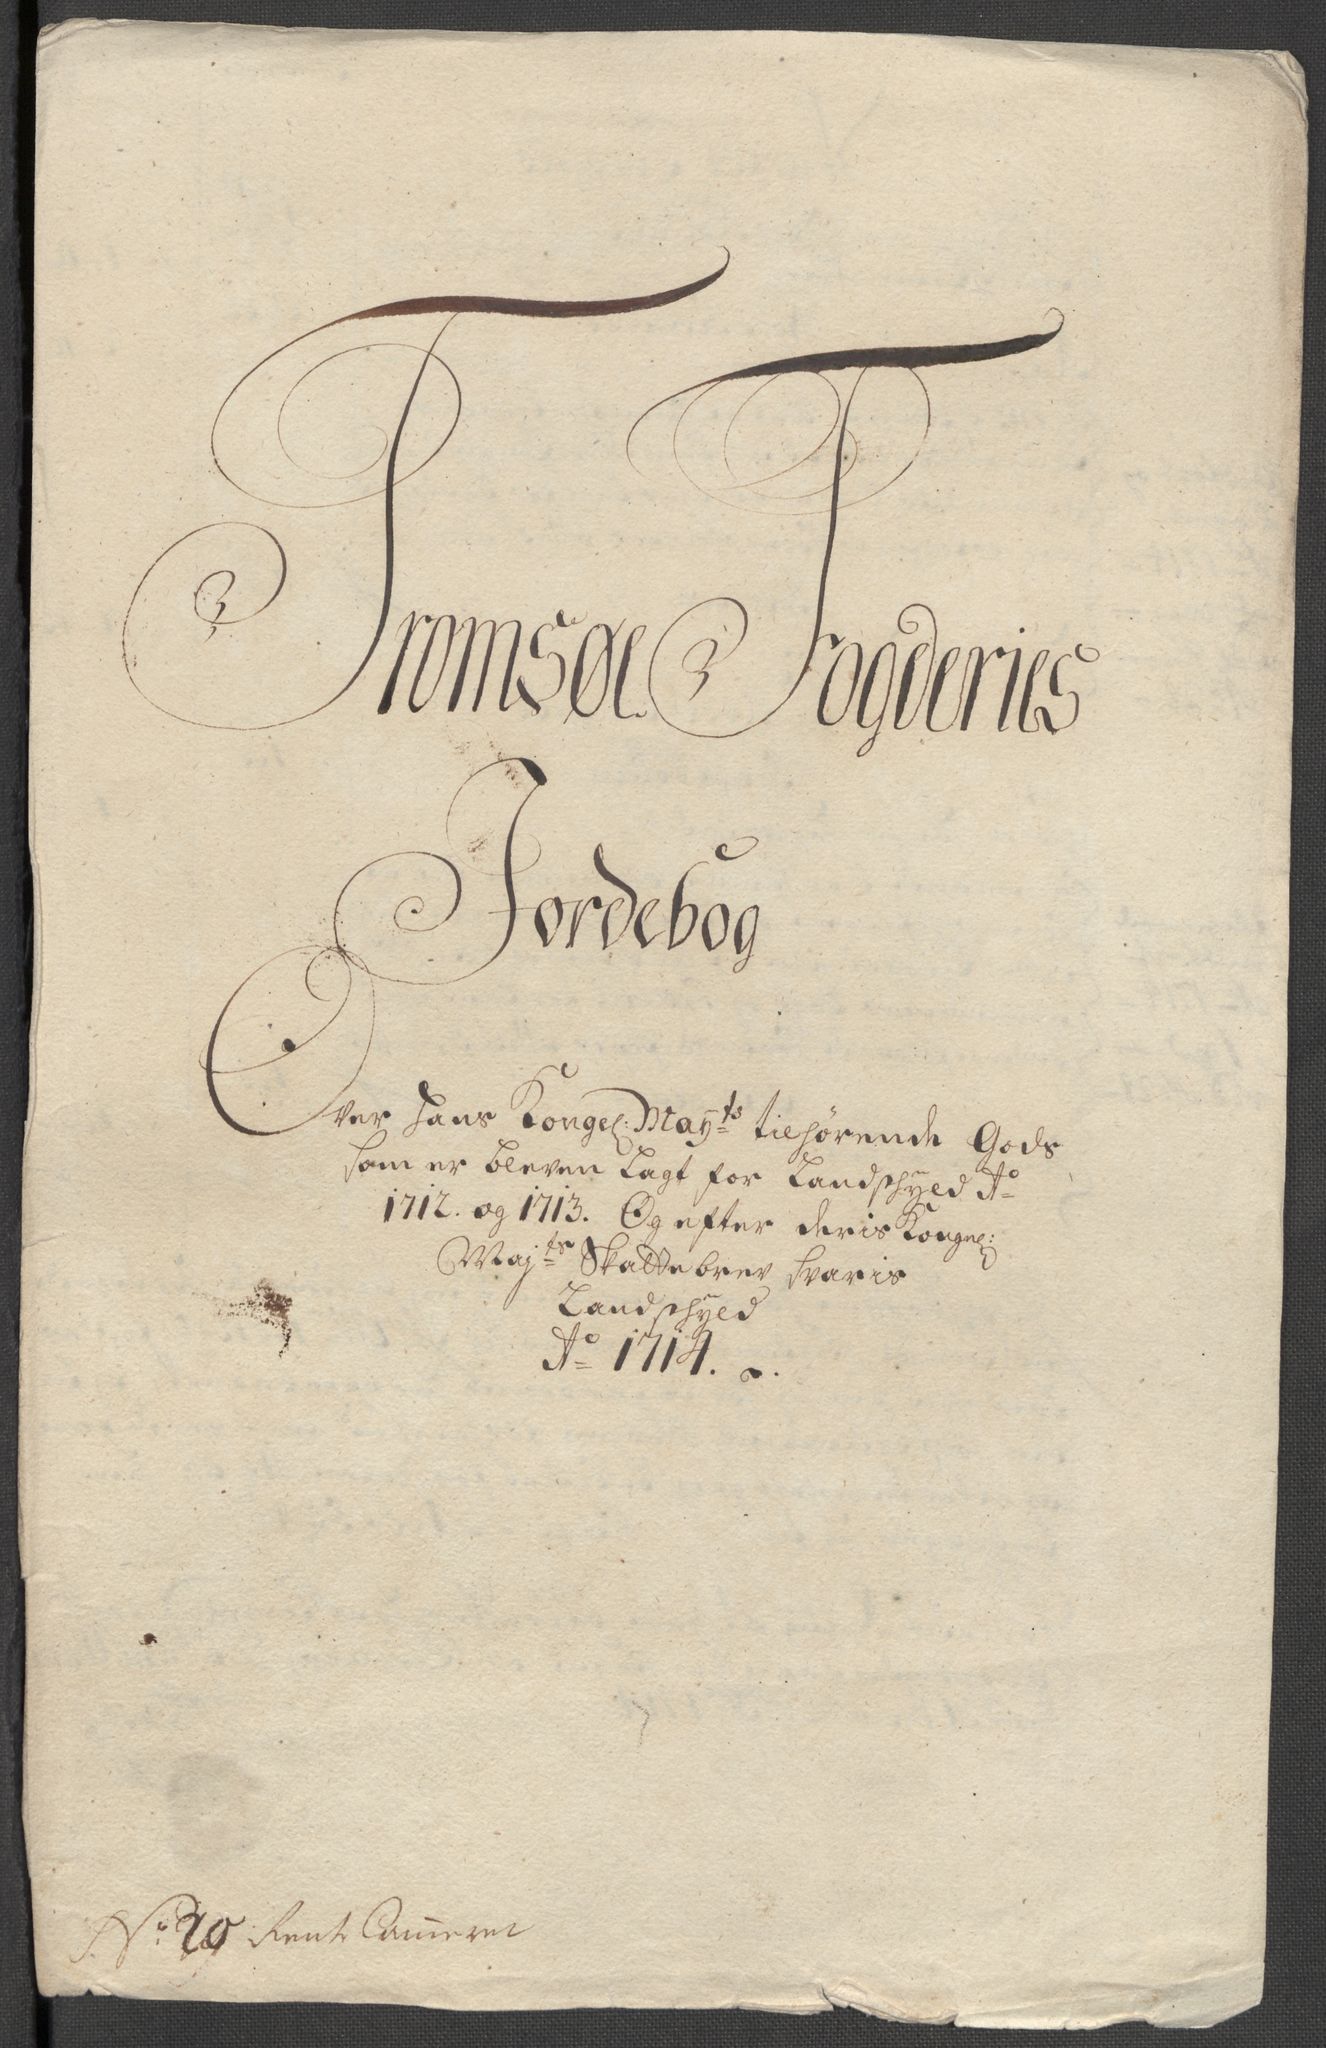 Tromsøe Fogderies
Jordebog
Over hans Kongel: May^ts tilhørende Gods
som er bleven lagt for Landschyld A^o
1712. og 1713. Og efter deris Kongel:
Maj^ts Skattebrev svaris
Landschyld
A^o 1714.
N^o: 20 Rente Cameret